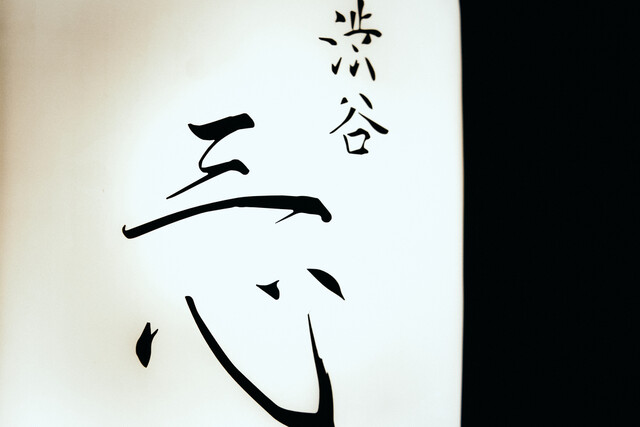 渋谷
三心